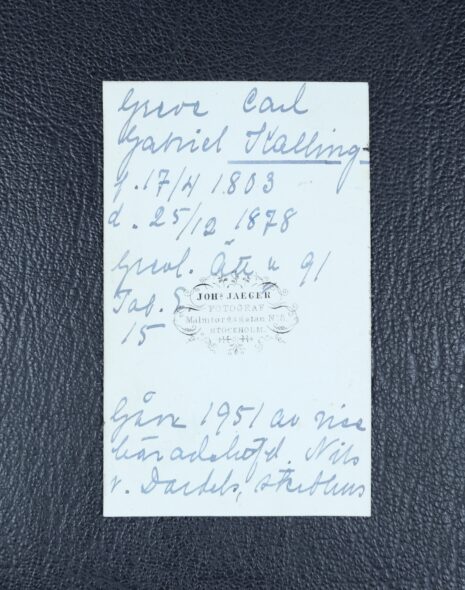 Greve Carl
Gabriel Kalling
f. 17/4 1803
d. 25/12 1878
Grevl. Ätt n 91
Tab.
15
JOHS. JAEGER
FOTOGRAF
Malmtorgsgatan No 8
STOCKHOLM.
Gåva 1951 av vice
häradshöfd. Nils
v. Dardels,